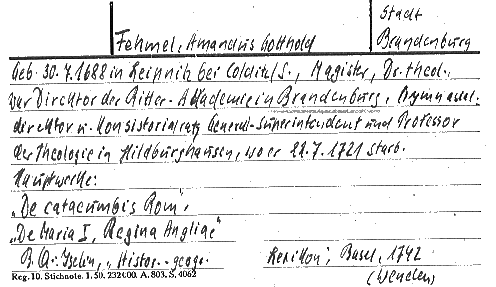 Stadt
Fehmel, Amandus Gotthold Brandenburg
Geb. 30.7.1688 in Leipnitz bei Colditz/S., Magister, Dr. theol.,
war Direktor der Ritter-Akademie in Brandenburg, Gymnasial-
direktor u. Konsistorialrat, General-Superintendent und Professor
der Theologie in Hildburghausen, wo er 21.7.1721 starb.
Hauptwerke:
„De catacumbis Rom",
„De Maria I, Regina Angliae"
B. Q.: Iselin, „Histor.-geogr. Lexikon", Basel, 1742
(Wenden)
Reg. 10. Stichnote. 1. 50. 232000. A. 803. S. 4062